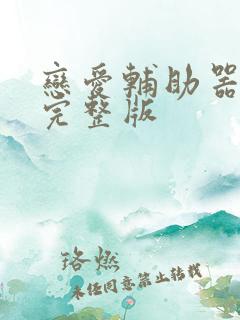 戀愛輔助器
完整版
珞燃
未经同意禁止转载